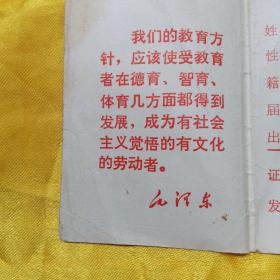 我们的教育方
针，应该使受教育
者在德育、智育、
体育几方面都得到
发展，成为有社会
主义觉悟的有文化
的劳动者。
毛泽东
姓
性
籍
届
出
证
发